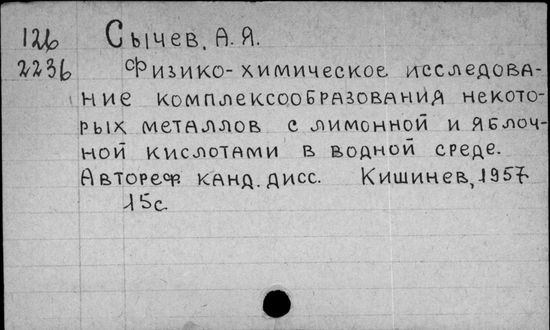 126 Сычев, А.Я.
2236 Физико-химическое исследова-
ние комплексообразования некото-
рых металлов с лимонной и яблоч-
ной кислотами в водной среде.
Автореф. канд. дисс. Кишинев, 1957
15с.